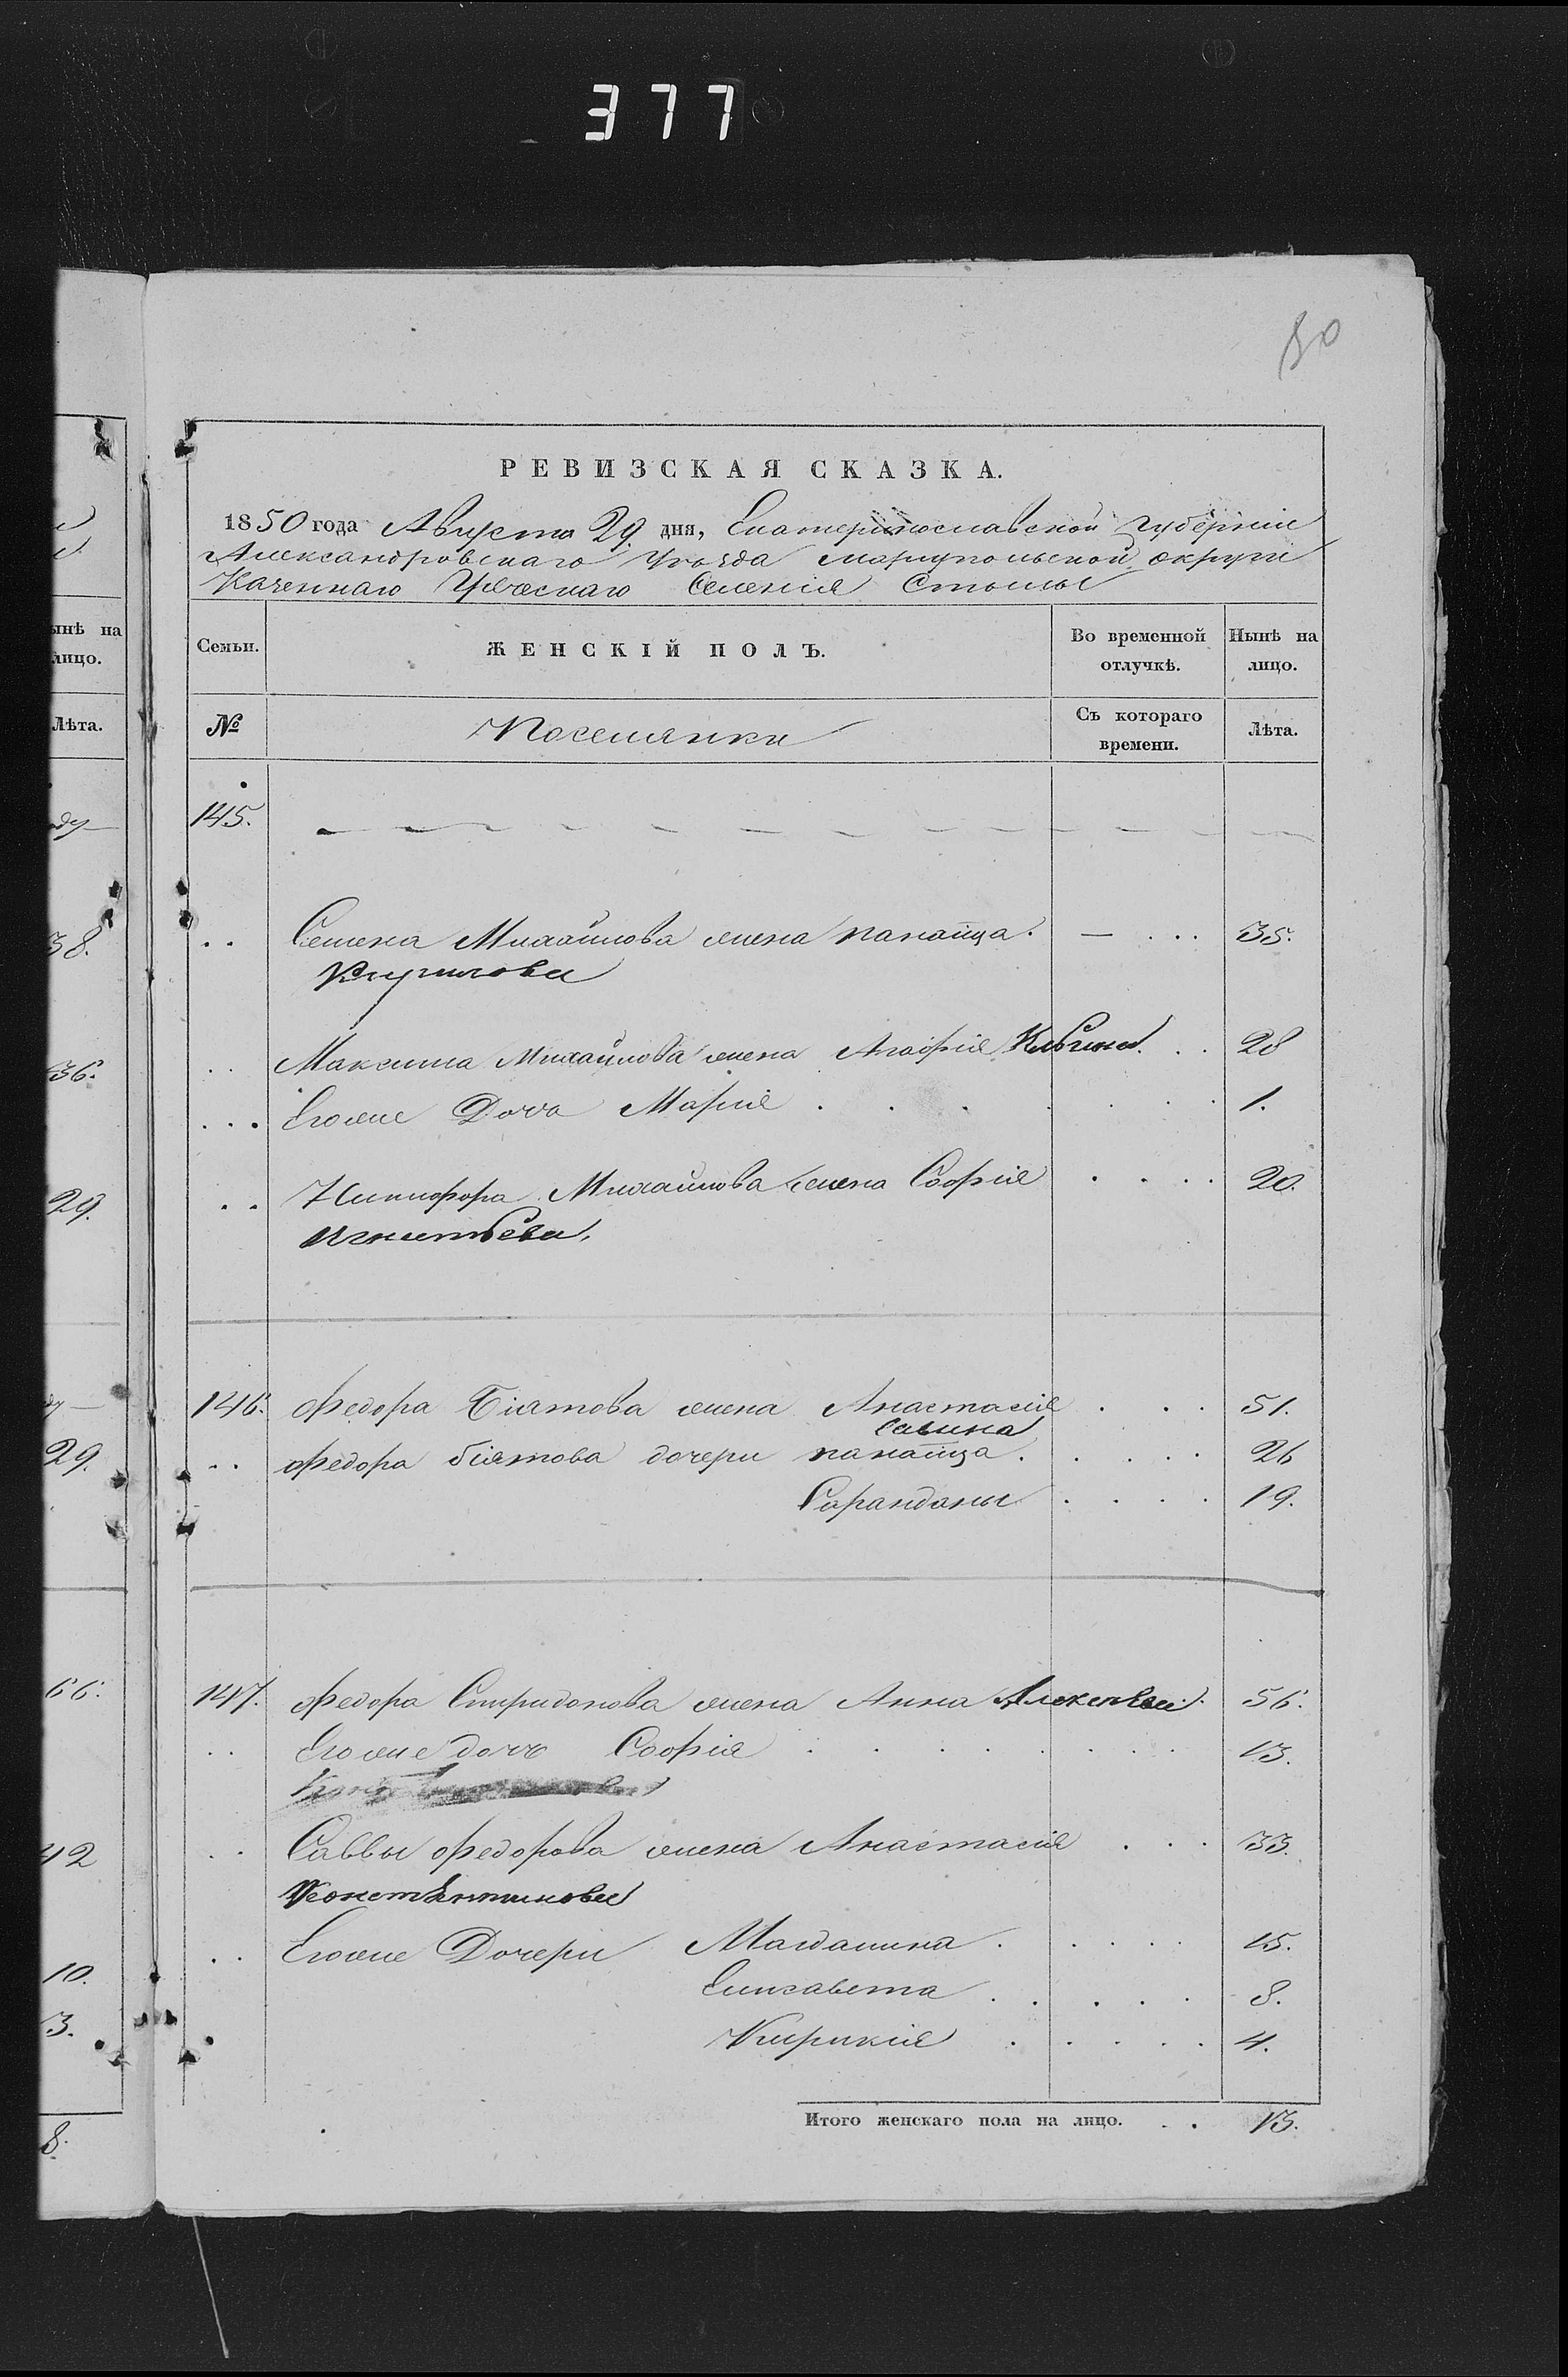 377
80
РЕВИЗСКАЯ СКАЗКА.
1850 года Августа 29 дня, Екатеринославской губерніи
Александровскаго Уѣзда Мариупольской округи
Казеннаго Греческаго Селенія Стылы
Семьи. ЖЕНСКІЙ ПОЛЪ. Во временной отлучкѣ. Нынѣ на лицо.
№ Поселянки Съ котораго времени. Лѣта.
145.
Семена Михайлова жена Панаица. — 35.
Кирилова
Максима Михайлова жена Агафія 28
Егоже Дочь Марія 1.
Никифора Михайлова жена Софія 20.
Игнатьева.
146. Федора Біятова жена Анастасія 51.
Савина
Федора біятова дочери панаица. 26
Сарандоны 19.
147. Федора Спиридонова жена Анна Алексѣева 56.
Егоже дочь Софія 13.
Саввы Федорова жена Анастасія 33.
Константинова
Егоже Дочери Магдалина 15.
Елизавета 8.
Кирикія 4.
Итого женскаго пола на лицо. 13.
ынѣ на
лицо.
Лѣта.
38.
36.
29.
29.
66.
42
10.
3.
8.